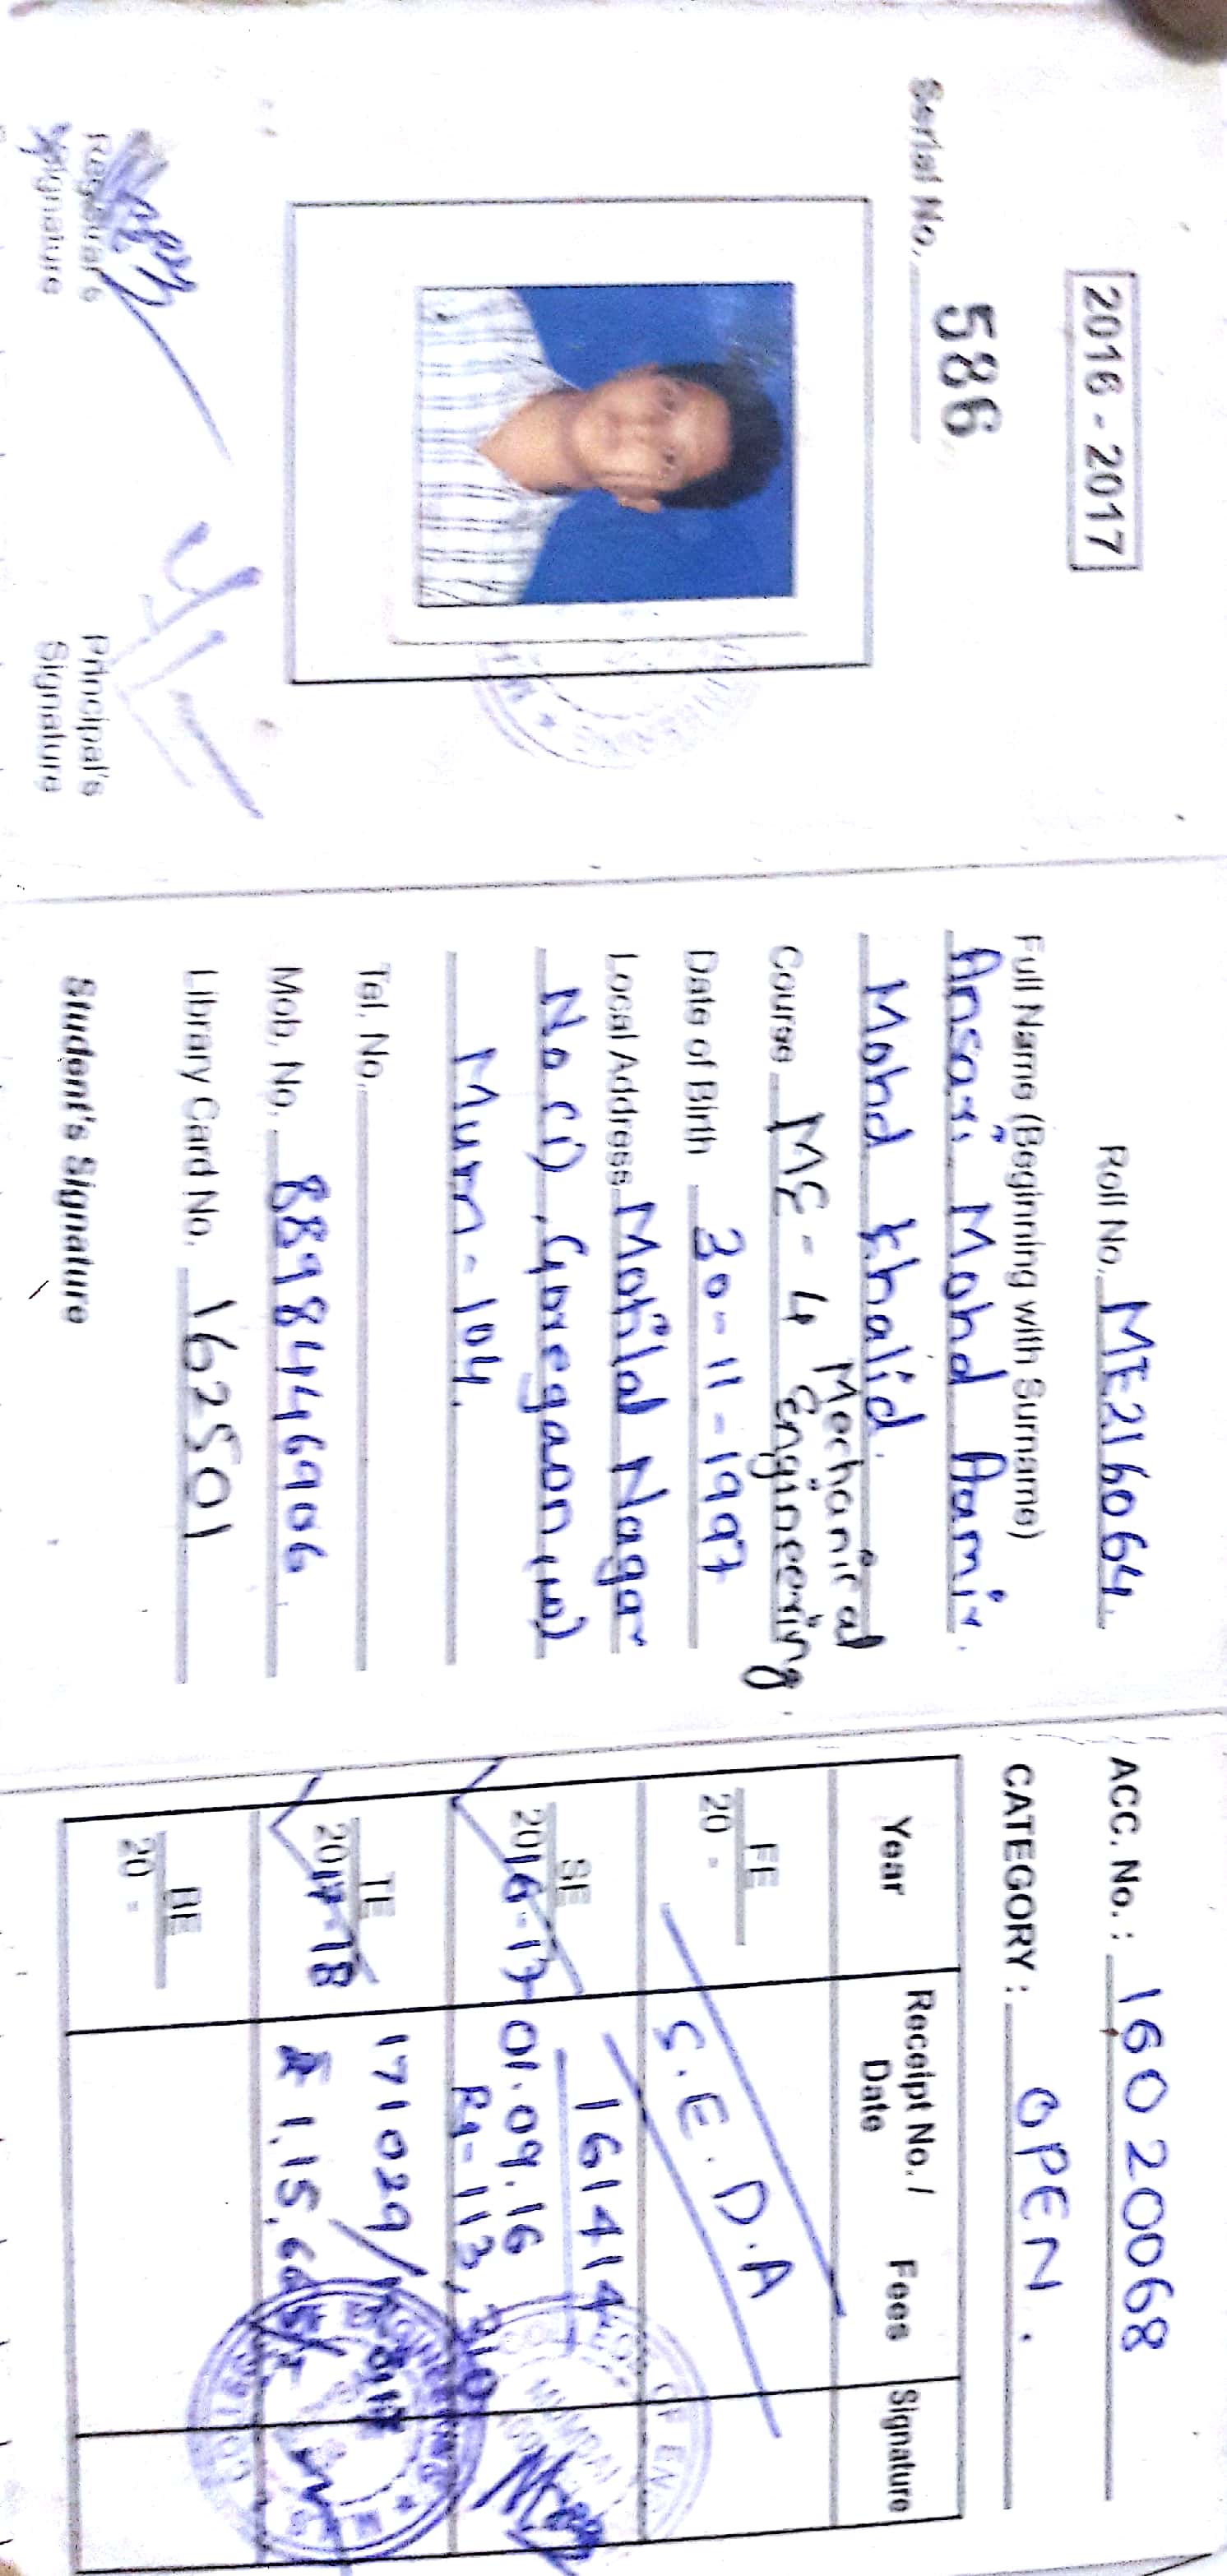 2016 - 2017
Serial No. 586
Registrar's
Signature
Principal's
Signature
Roll No. ME216064.
Full Name (Beginning with Surname)
Ansari Mohd Aamir.
Mohd Khalid.
Course ME - 4 Mechanical
Engineering.
Date of Birth 30-11-1997
Local Address Motilal Nagar
No (1), Goregaon (w)
Mum - 104.
Tel. No.
Mob. No. 8898446906
Library Card No. 162501
Student's Signature
ACC. No. : 16020068
CATEGORY : OPEN.
Year Receipt No. / Date Fees Signature
FE
20 -
S.E.D.A
SE
2016-17
161414
01.09.16
Rs-113,310
TE
2017-18
171029/
₹ 1,15,
BE
20 -